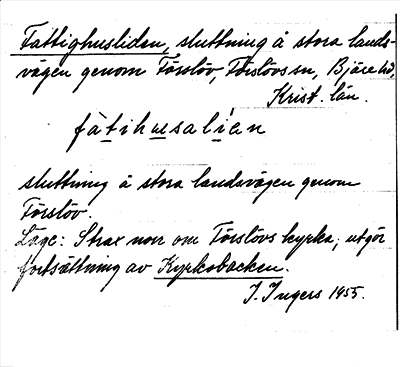 Fattighusliden, sluttning å stora lands-
vägen genom Förslöv, Förslövs sn, Bjäre hd,
Krist. län.
fàtihusalíən
sluttning å stora landsvägen genom
Förslöv.
Läge: Strax norr om Förslövs kyrka; utgör
fortsättning av Kyrkobacken.
I. Ingers 1955.